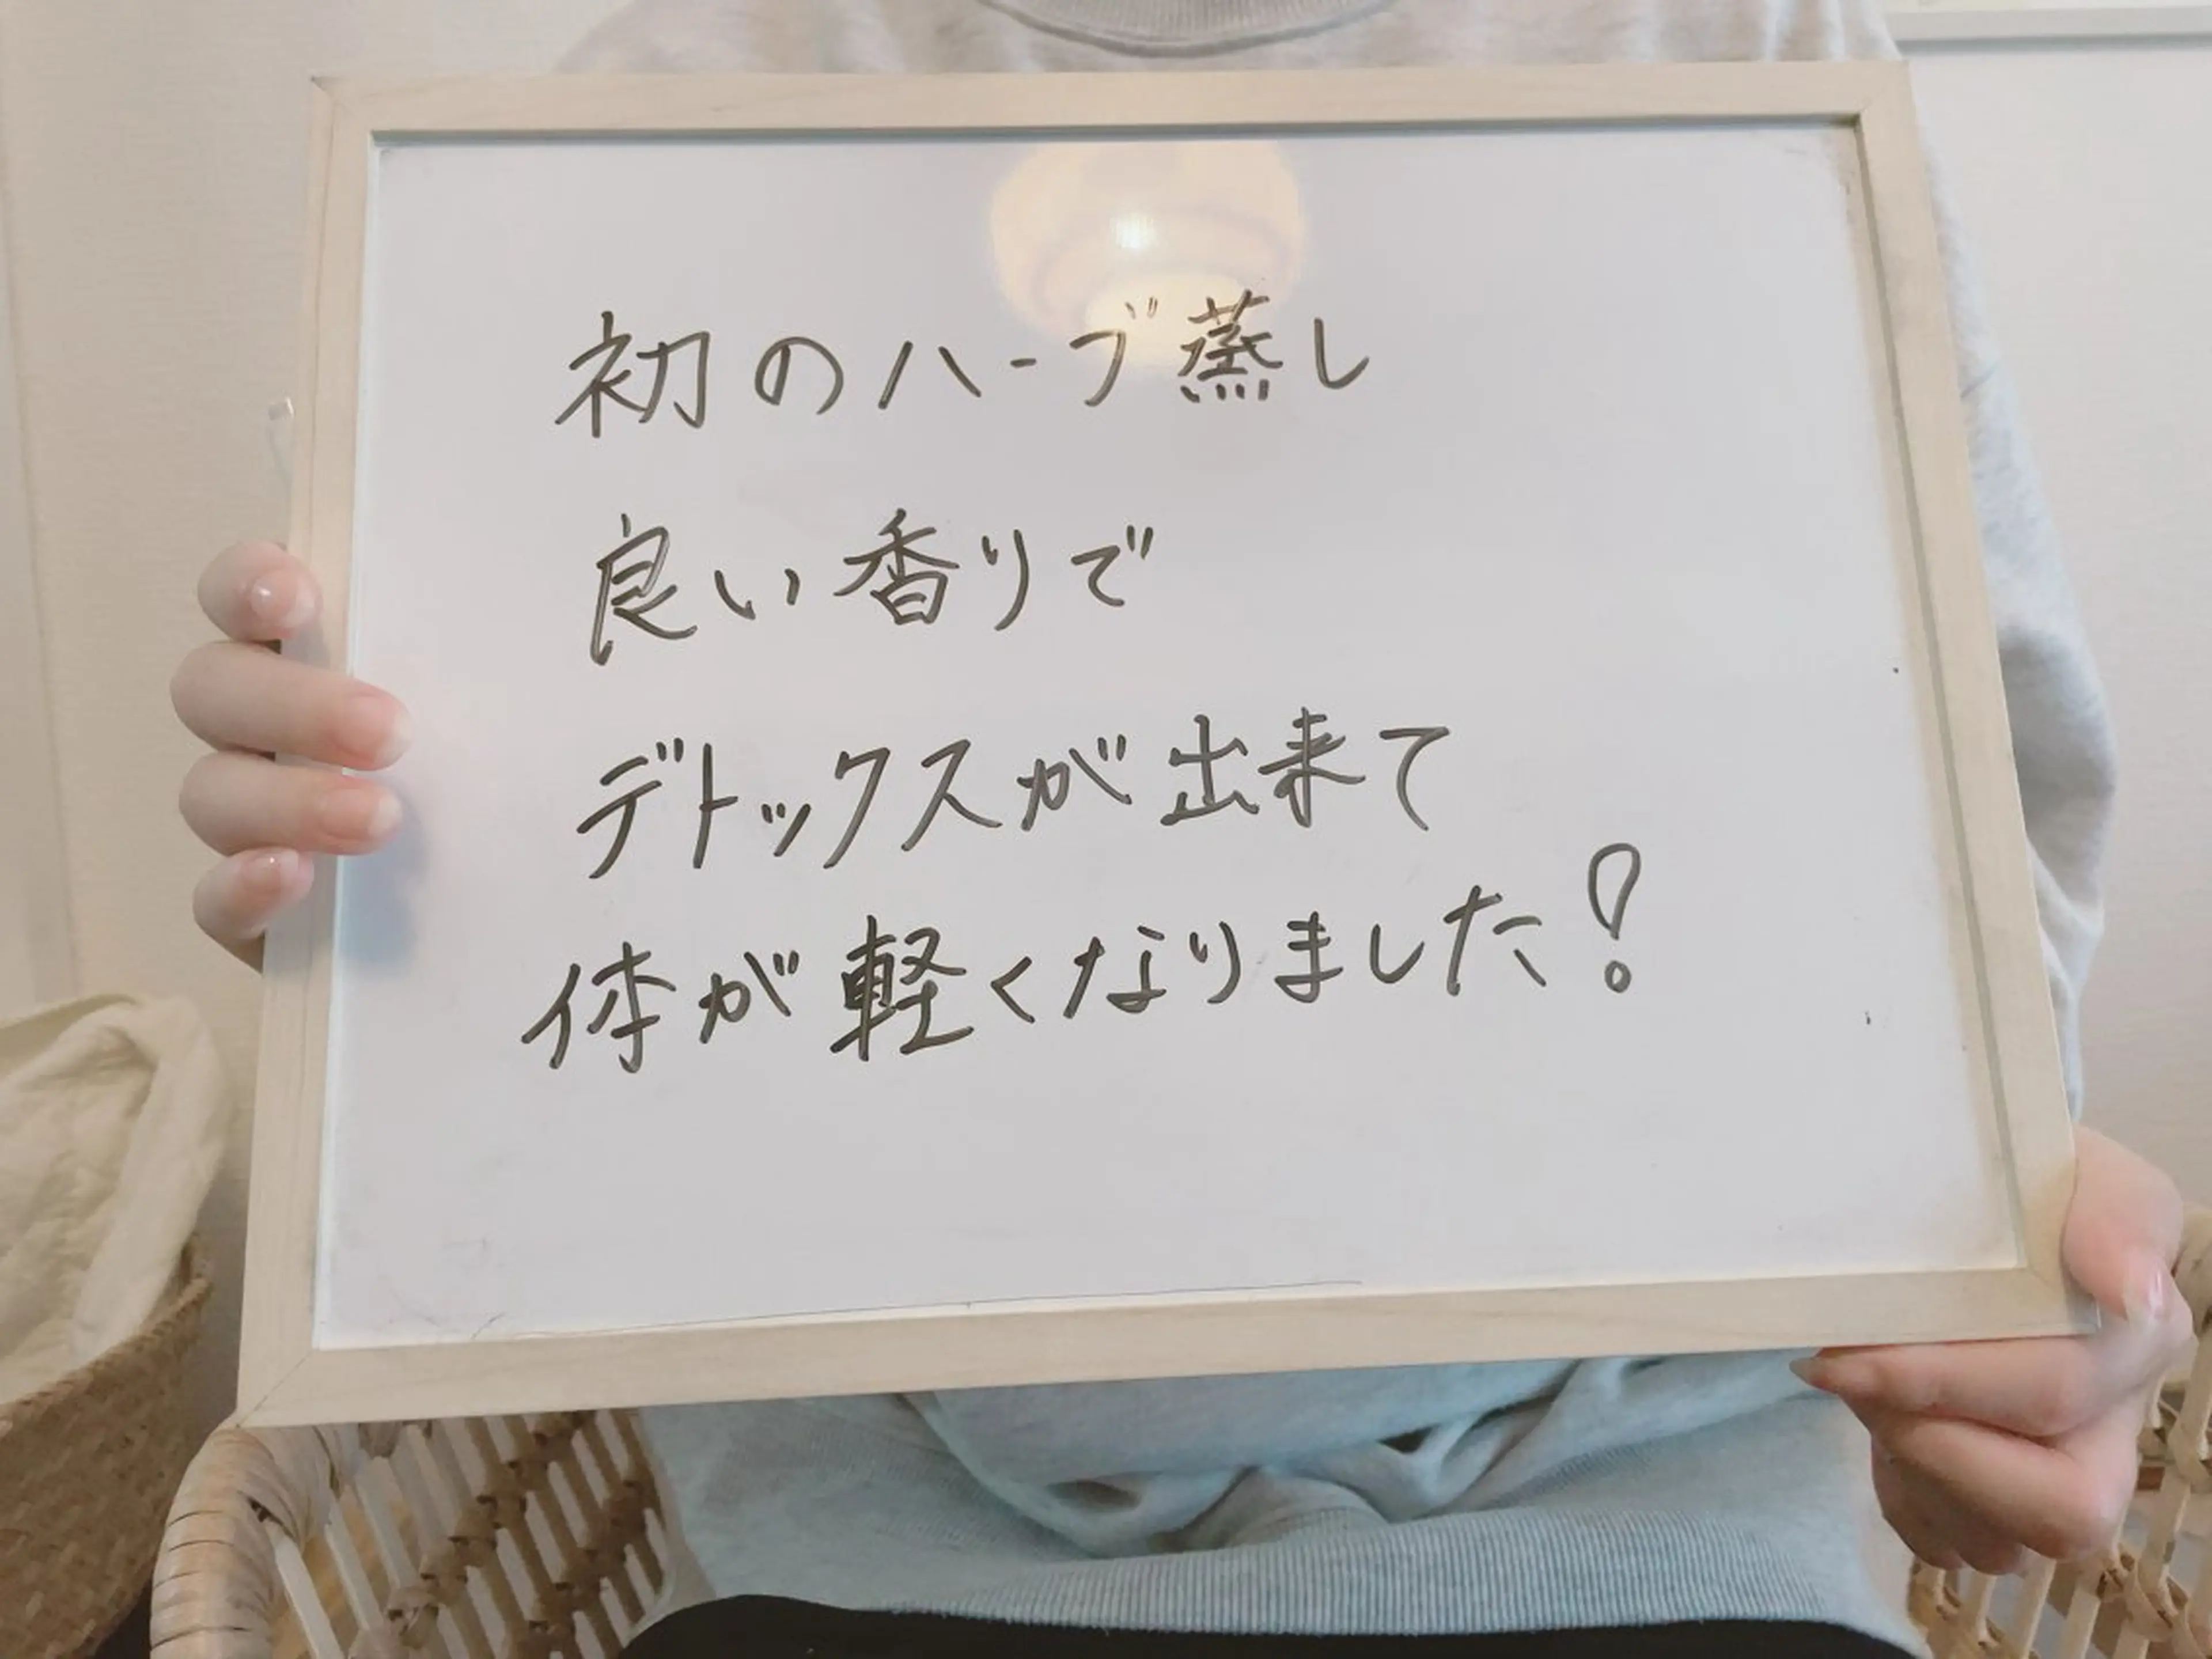 初のハーブ蒸し
良い香りで
デトックスが出来て
体が軽くなりました!